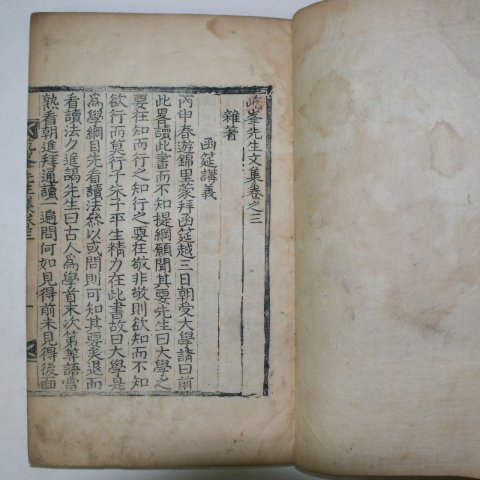 峯先生文集卷之三
雜著
函筵講義
丙申春遊錦里蒙拜函筵越三日朝受大學請曰前
此畧讀此書而不知提綱願聞其要先生曰大學之
要在知而行之知行之要在敬非敬則欲知而不知
欲行而莫行子朱子平生精力在此書故曰大學是
爲學綱目先看讀法參以或問則可知其要矣退而
看讀法夕進謁先生曰古人爲學首末次第解語當
熟看朝進拜通讀一遍問何如見得前未見得後面